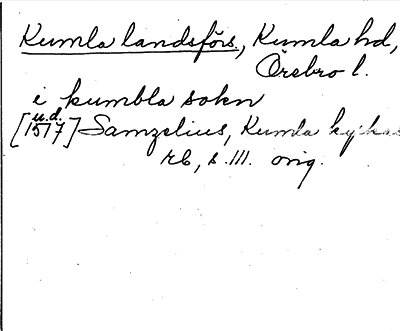 Kumla landsförs., Kumla hd,
Örebro l.
i kumbla sokn
u.d.
[1517] Samzelius, Kumla kyrkas
rb, s. 111. orig.